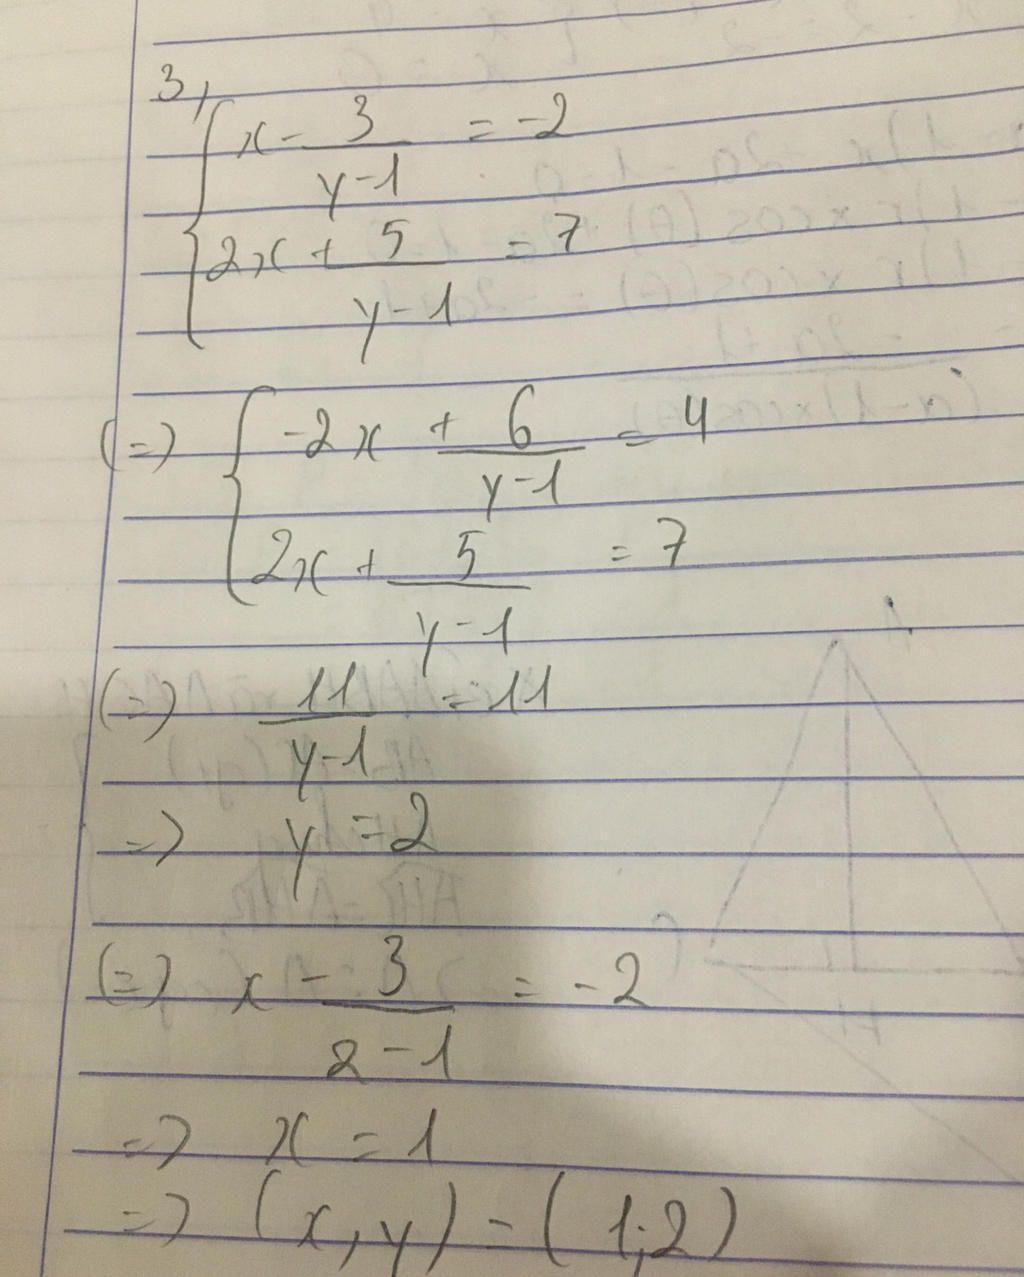 3,
x - 3/(y-1) = -2
2x + 5/(y-1) = 7
(=) -2x + 6/(y-1) = 4
2x + 5/(y-1) = 7
(=) 11/(y-1) = 11
=) y = 2
(=) x - 3/(2-1) = -2
=) x = 1
=) (x, y) = (1;2)